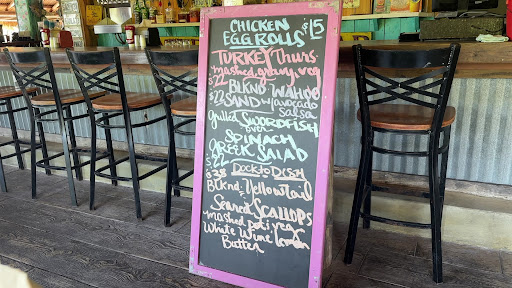 CHICKEN $15
EGG ROLLS
TURKEY Thurs
mashed, gravy, veg
$22 BLKND WAHOO
$23 SAND w/avocado
salsa
grilled SWORDFISH
over
SPINACH
GREEK SALAD
$22
DOCK to DISH
$38
BLKnd YellowTAIL
Seared SCALLOPS
mashed pot, veg
White Wine Lemon
Butter